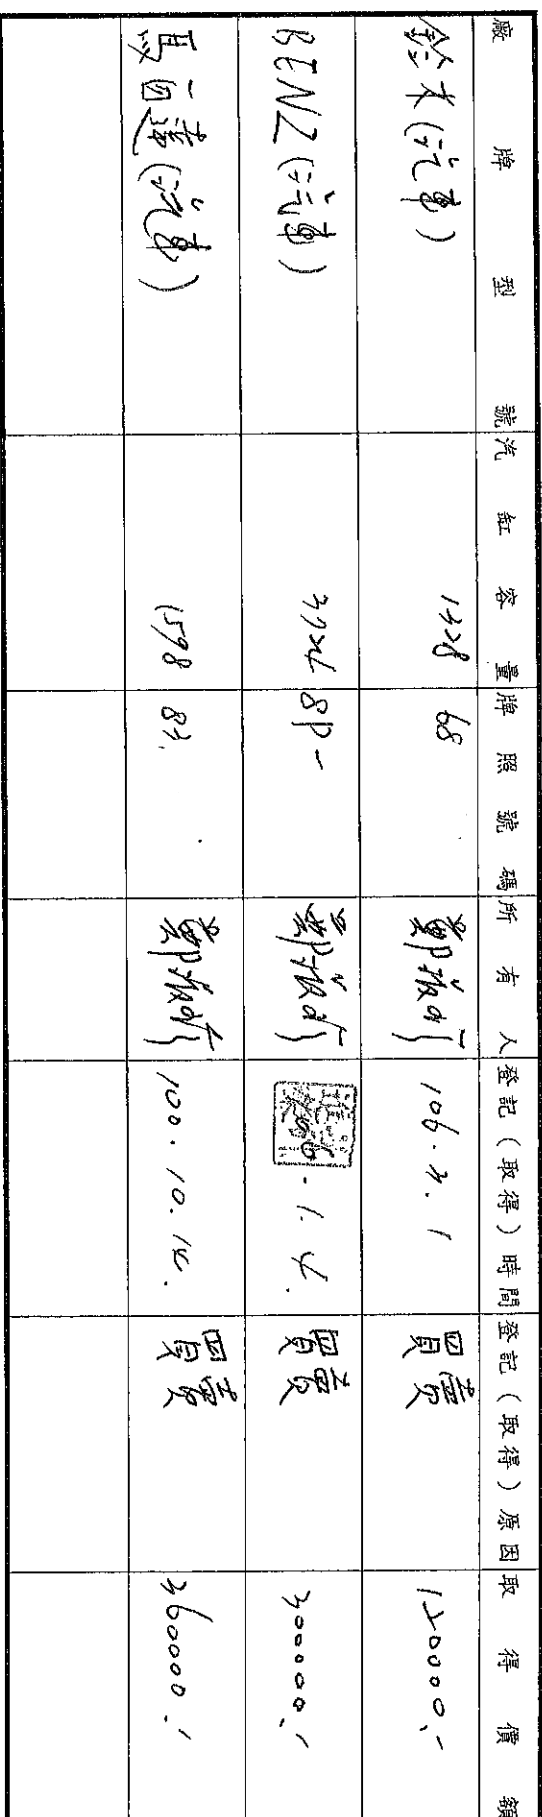 廠牌型號 汽缸容量 牌照號碼 所有人 登記(取得)時間 登記(取得)原因 取得價額
鈴木(汽車) 1328 68 106.2.1 買賣 120000.-
BENZ(汽車) 8P- .1.4. 買賣 300000.-
馬自達(汽車) 1598 83. 100.10.14. 買賣 360000.-